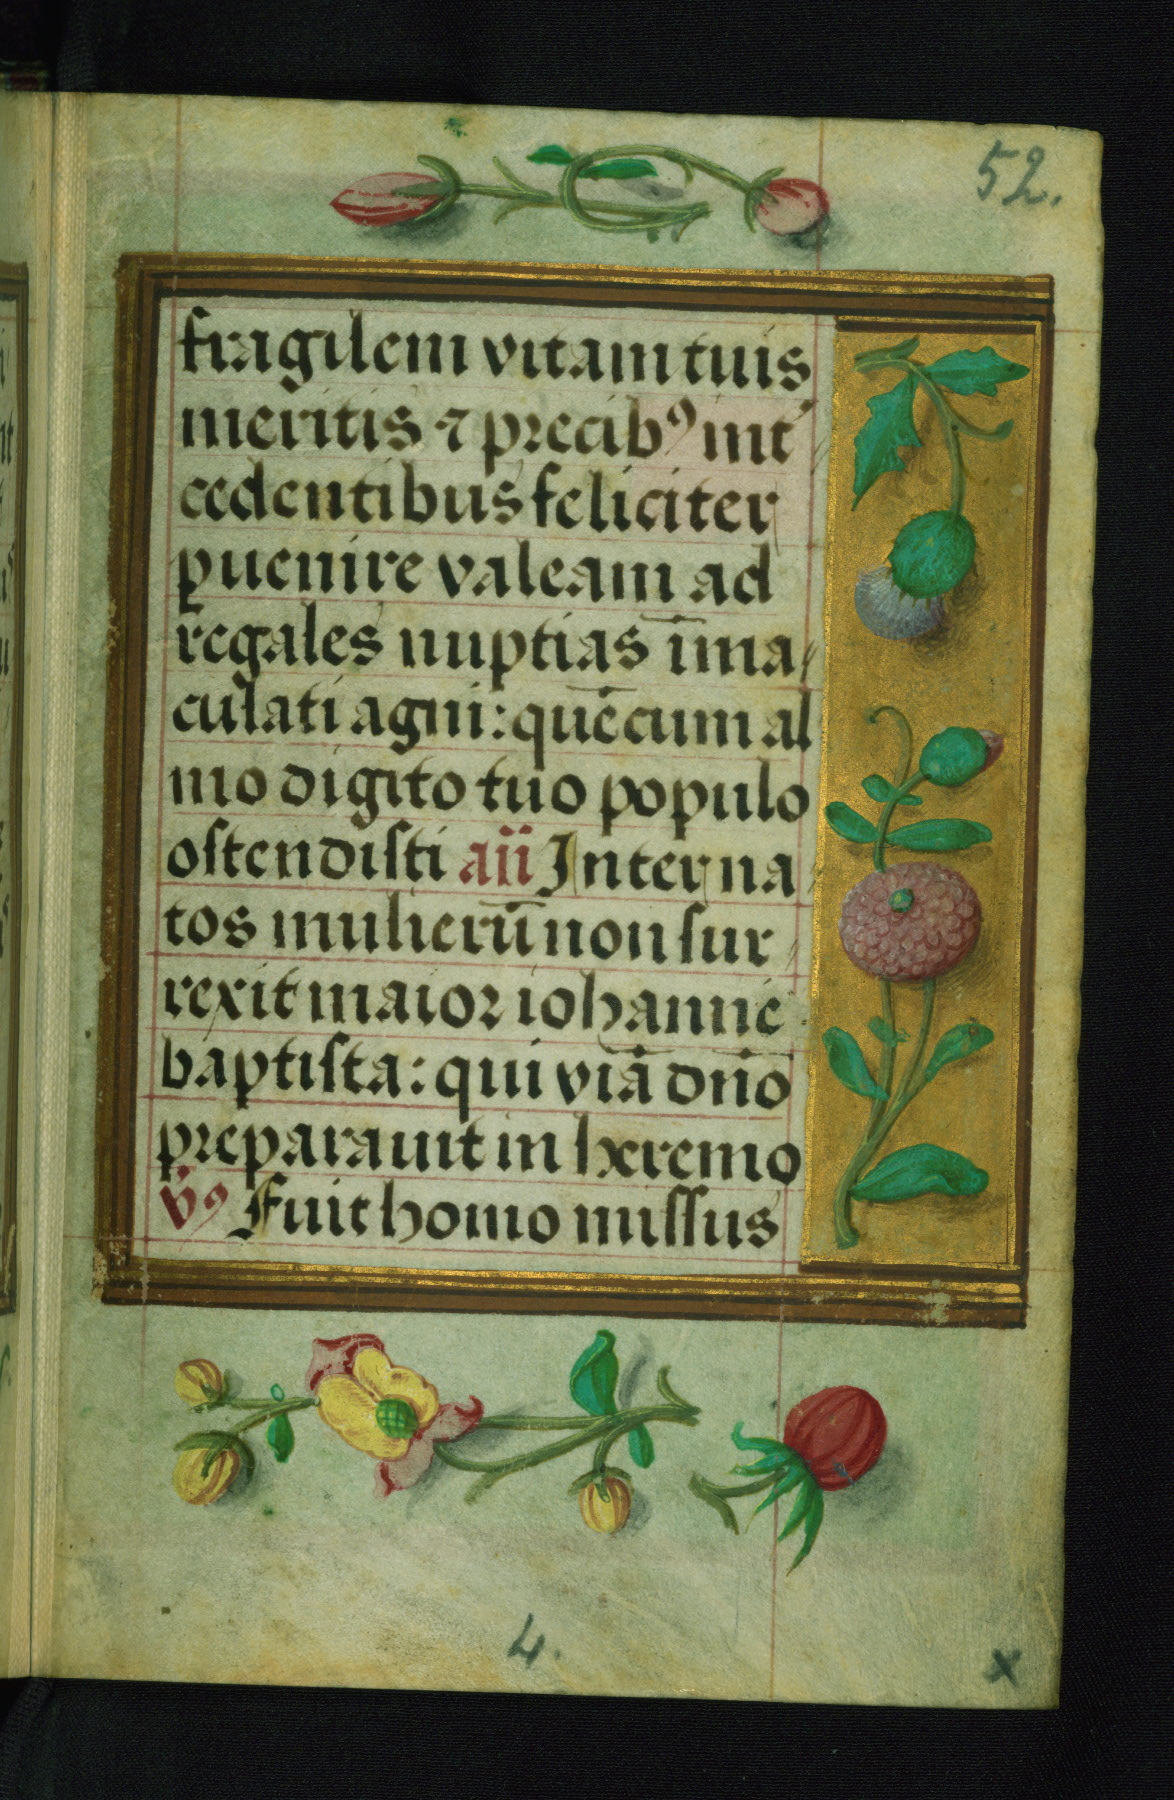 52.
fragilem vitam tuis
meritis ⁊ precibꝰ int̕
cedentibus feliciter
ꝑuenire valeam ad
regales nuptias īma
culati agni: quē cum al
mo digito tuo populo
ostendisti añ Inter na
tos mulierū non sur
rexit maior iohanne
baptista: qui viā dn̄o
preparauit in hxremo
v̕ꝰ Fuit homo missus
4.
x